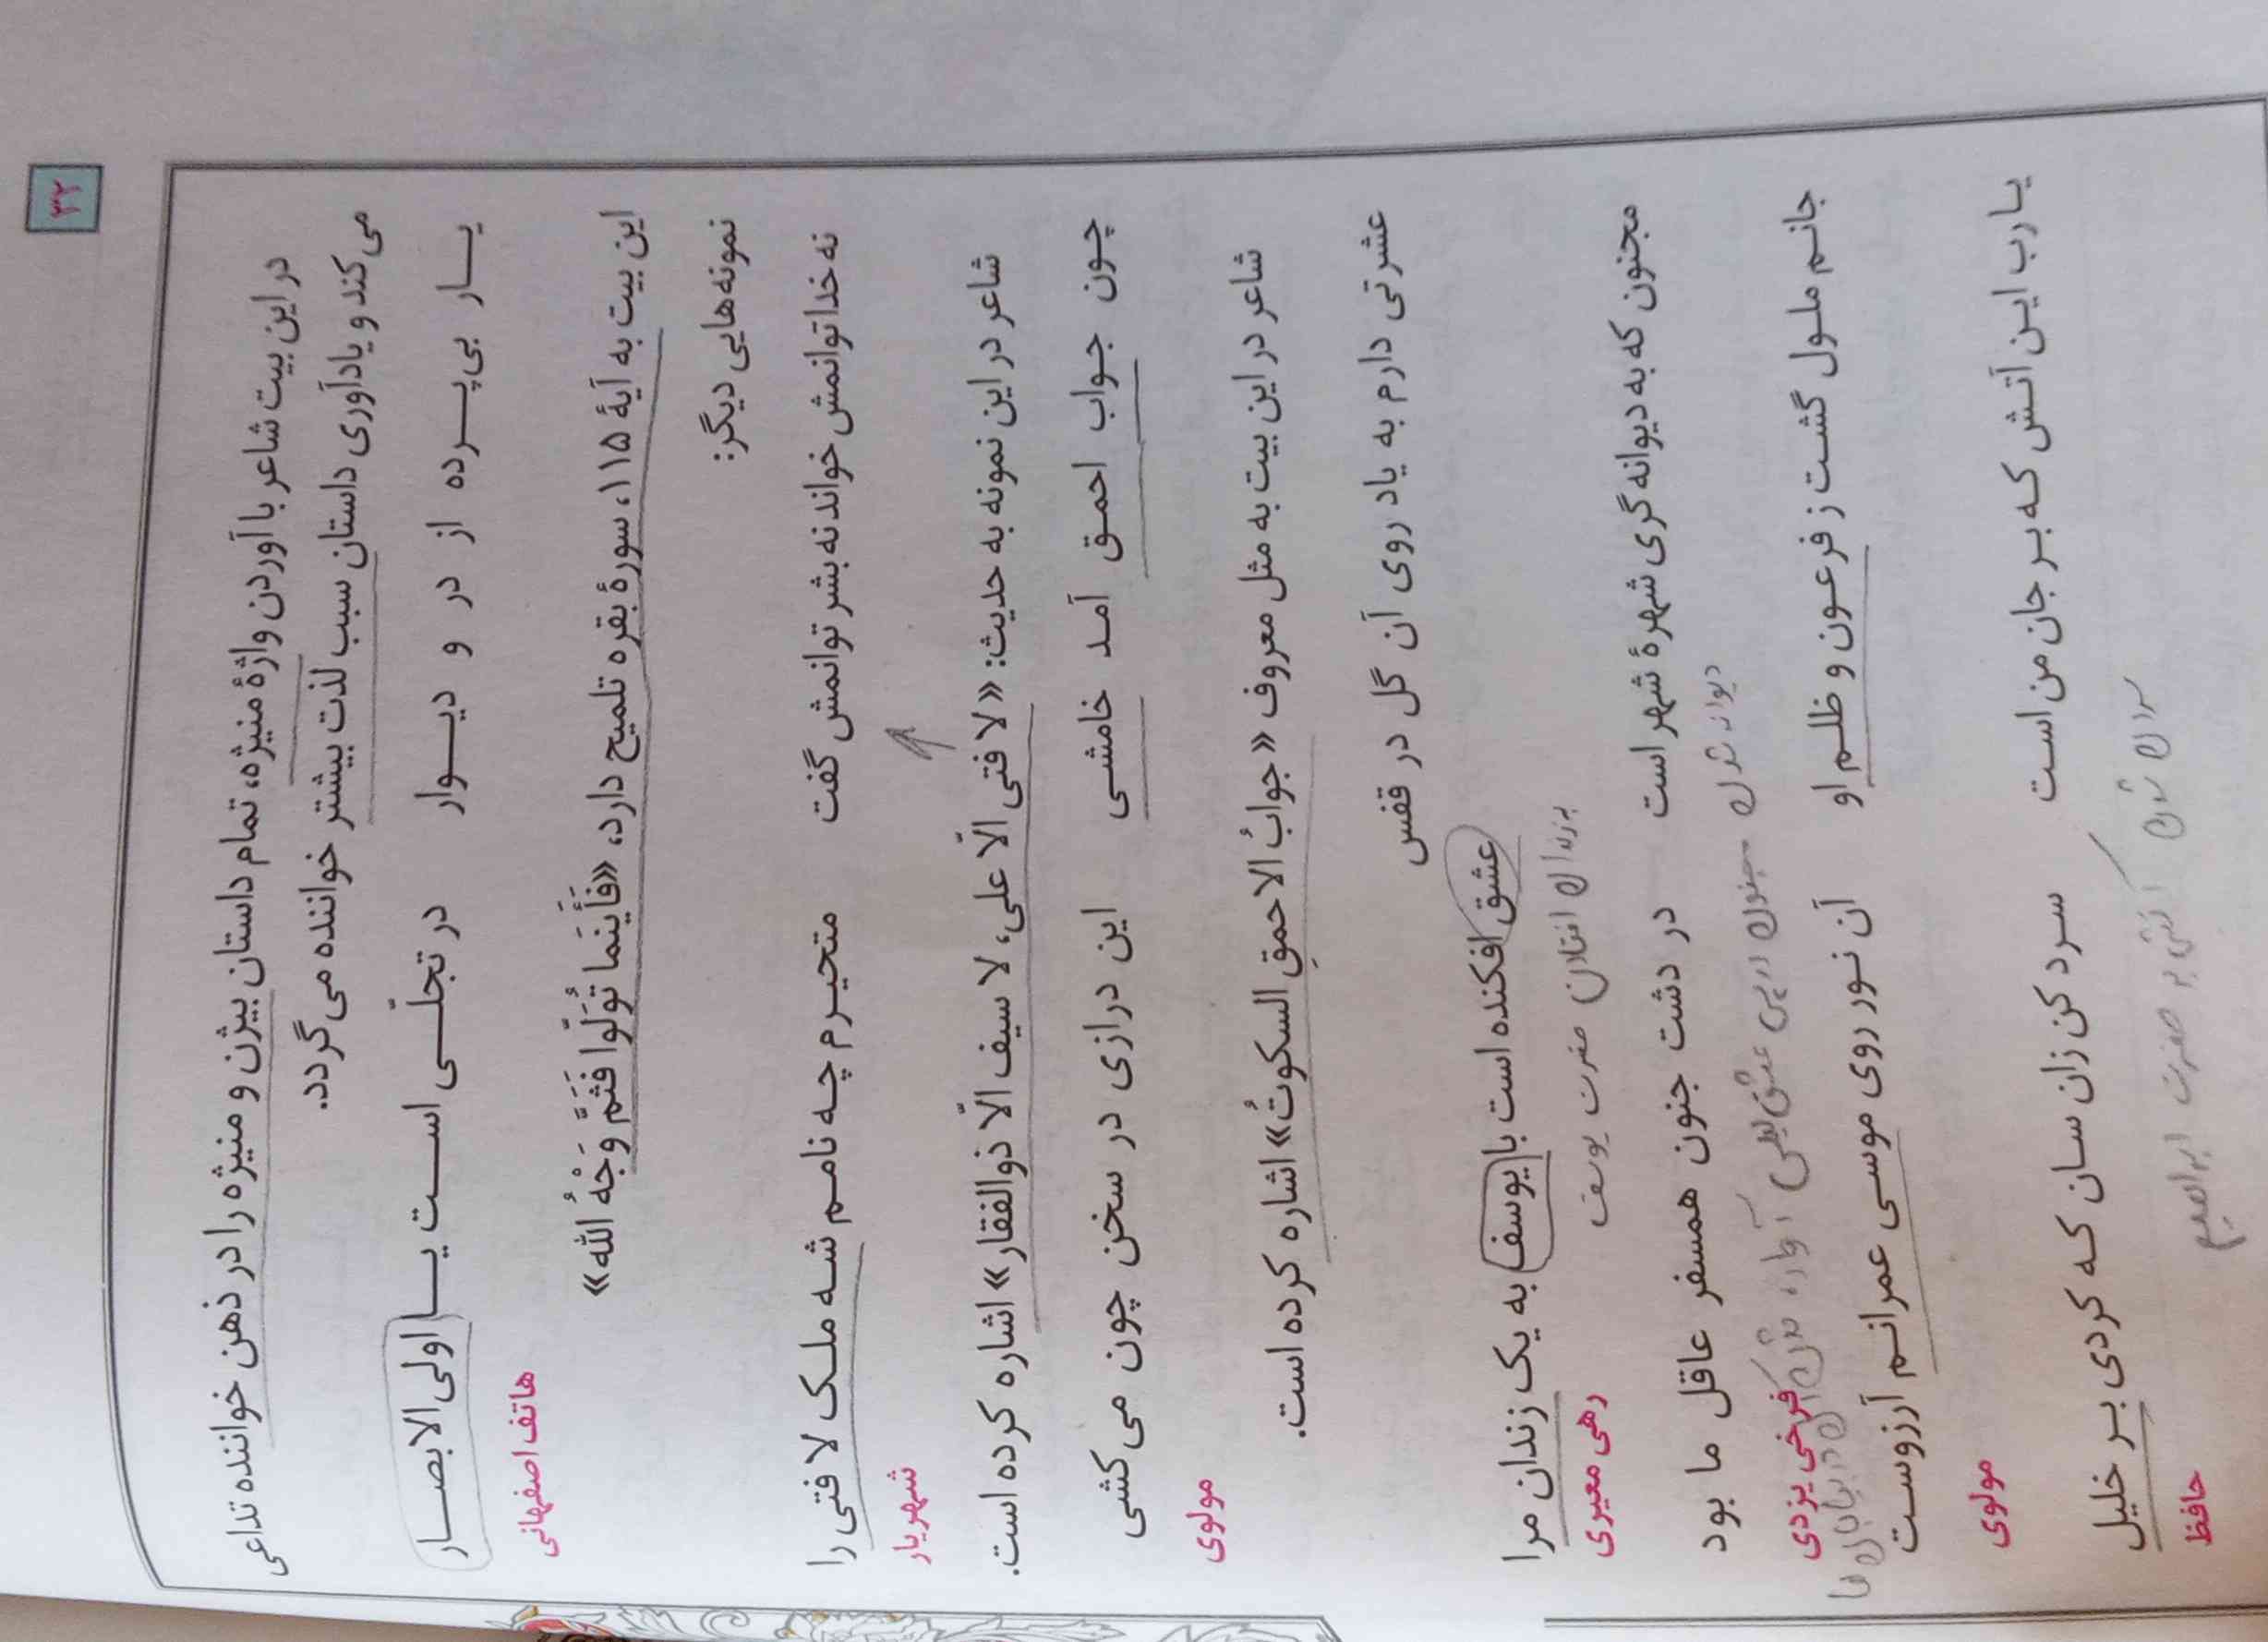 ۳۲
در این بیت شاعر با آوردن واژهٔ منیژه، تمام داستان بیژن و منیژه را در ذهن خواننده تداعی
می‌کند و یادآوری داستان سبب لذت بیشتر خواننده می‌گردد.
یار بی‌پرده از در و دیوار در تجلّی است یا اولی الابصار
هاتف اصفهانی
این بیت به آیهٔ ۱۱۵، سورهٔ بقره تلمیح دارد، «فَأَینَما تُوَلّوا فَثَمَّ وَجْهُ الله»
نمونه‌هایی دیگر:
نه خدا توانمش خواند نه بشر توانمش گفت متحیرم چه نامم شه ملک لا فتی را
شهریار
شاعر در این نمونه به حدیث: «لا فتی الّا علی، لا سیف الّا ذوالفقار» اشاره کرده است.
چون جواب احمق آمد خامشی این درازی در سخن چون می‌کشی
مولوی
شاعر در این بیت به مثل معروف «جوابُ الاحمقِ السکوتُ» اشاره کرده است.
عشرتی دارم به یاد روی آن گل در قفس
عشق افکنده است با یوسف به یک زندان مرا
به زندان افتادن حضرت یوسف
رهی معیری
مجنون که به دیوانه‌گری شهرهٔ شهر است در دشت جنون همسفر عاقل ما بود
دیوانه شدن مجنون در پی عشق لیلی آواره شدن در بیابان ها
فرخی یزدی
جانم ملول گشت ز فرعون و ظلم او آن نور روی موسی عمرانم آرزوست
مولوی
یارب این آتش که بر جان من است سرد کن زان سان که کردی بر خلیل
سرد شدن آتش بر حضرت ابراهیم
حافظ